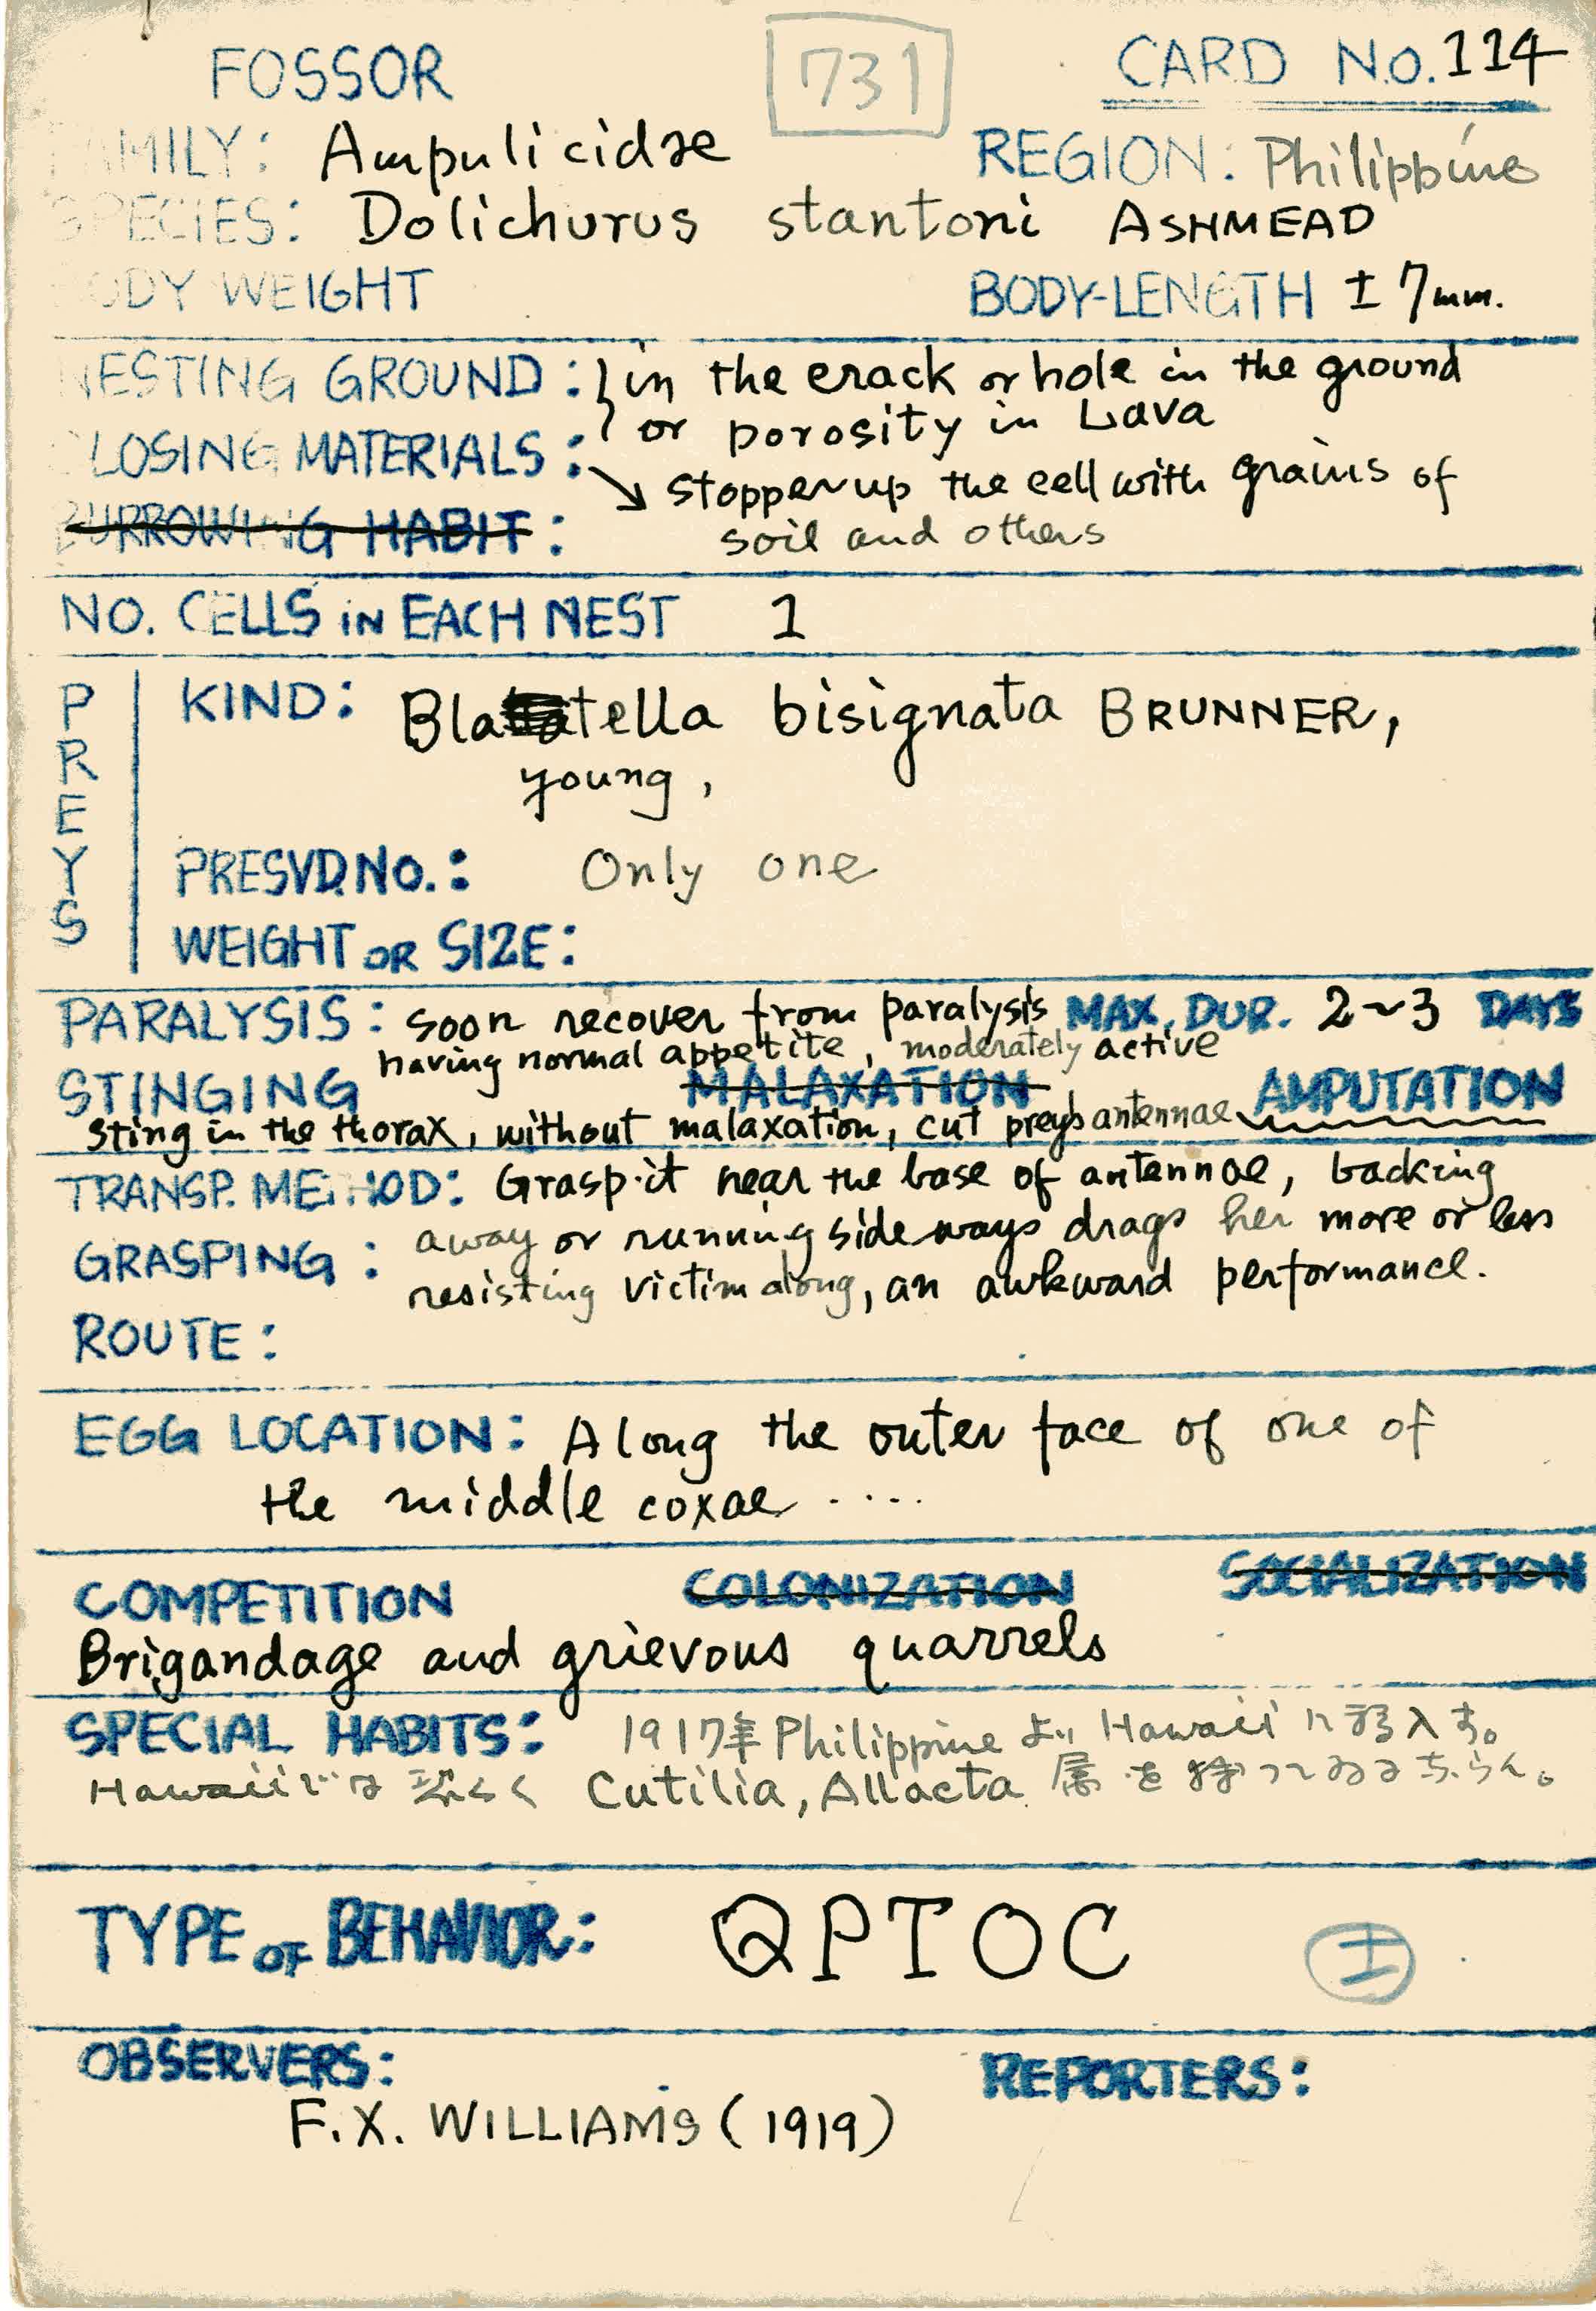 FOSSOR 731 CARD No. 114
FAMILY: Ampulicidae REGION: Philippine
SPECIES: Dolichurus stantoni ASHMEAD
BODY WEIGHT BODY-LENGTH ± 7mm.
NESTING GROUND: in the crack or hole in the ground
or porosity in Lava
CLOSING MATERIALS:
stopper up the cell with grains of
BURROWING HABIT: soil and others
NO. CELLS iN EACH NEST 1
PREYS
KIND: Blattella bisignata BRUNNER,
young,
PRESVD.NO.: Only one
WEIGHT OR SIZE:
PARALYSIS: soon recover from paralysis MAX. DUR. 2~3 DAYS
having normal appetite, moderately active
STINGING MALAXATION AMPUTATION
Sting in the thorax, without malaxation, cut prey's antennae
TRANSP. METHOD: Grasp it near the base of antennae, backing
GRASPING: away or running sideways drags her more or less
resisting victim along, an awkward performance.
ROUTE:
EGG LOCATION: Along the outer face of one of
the middle coxae ....
COMPETITION COLONIZATION SOCIALIZATION
Brigandage and grievous quarrels
SPECIAL HABITS: 1917年 Philippine より Hawaii に移入す。
Hawaiiでは 恐らく Cutilia, Allacta 属を狩つてゐるならん。
TYPE OF BEHAVIOR: QPTOC ±
OBSERVERS: REPORTERS:
F.X. WILLIAMS (1919)